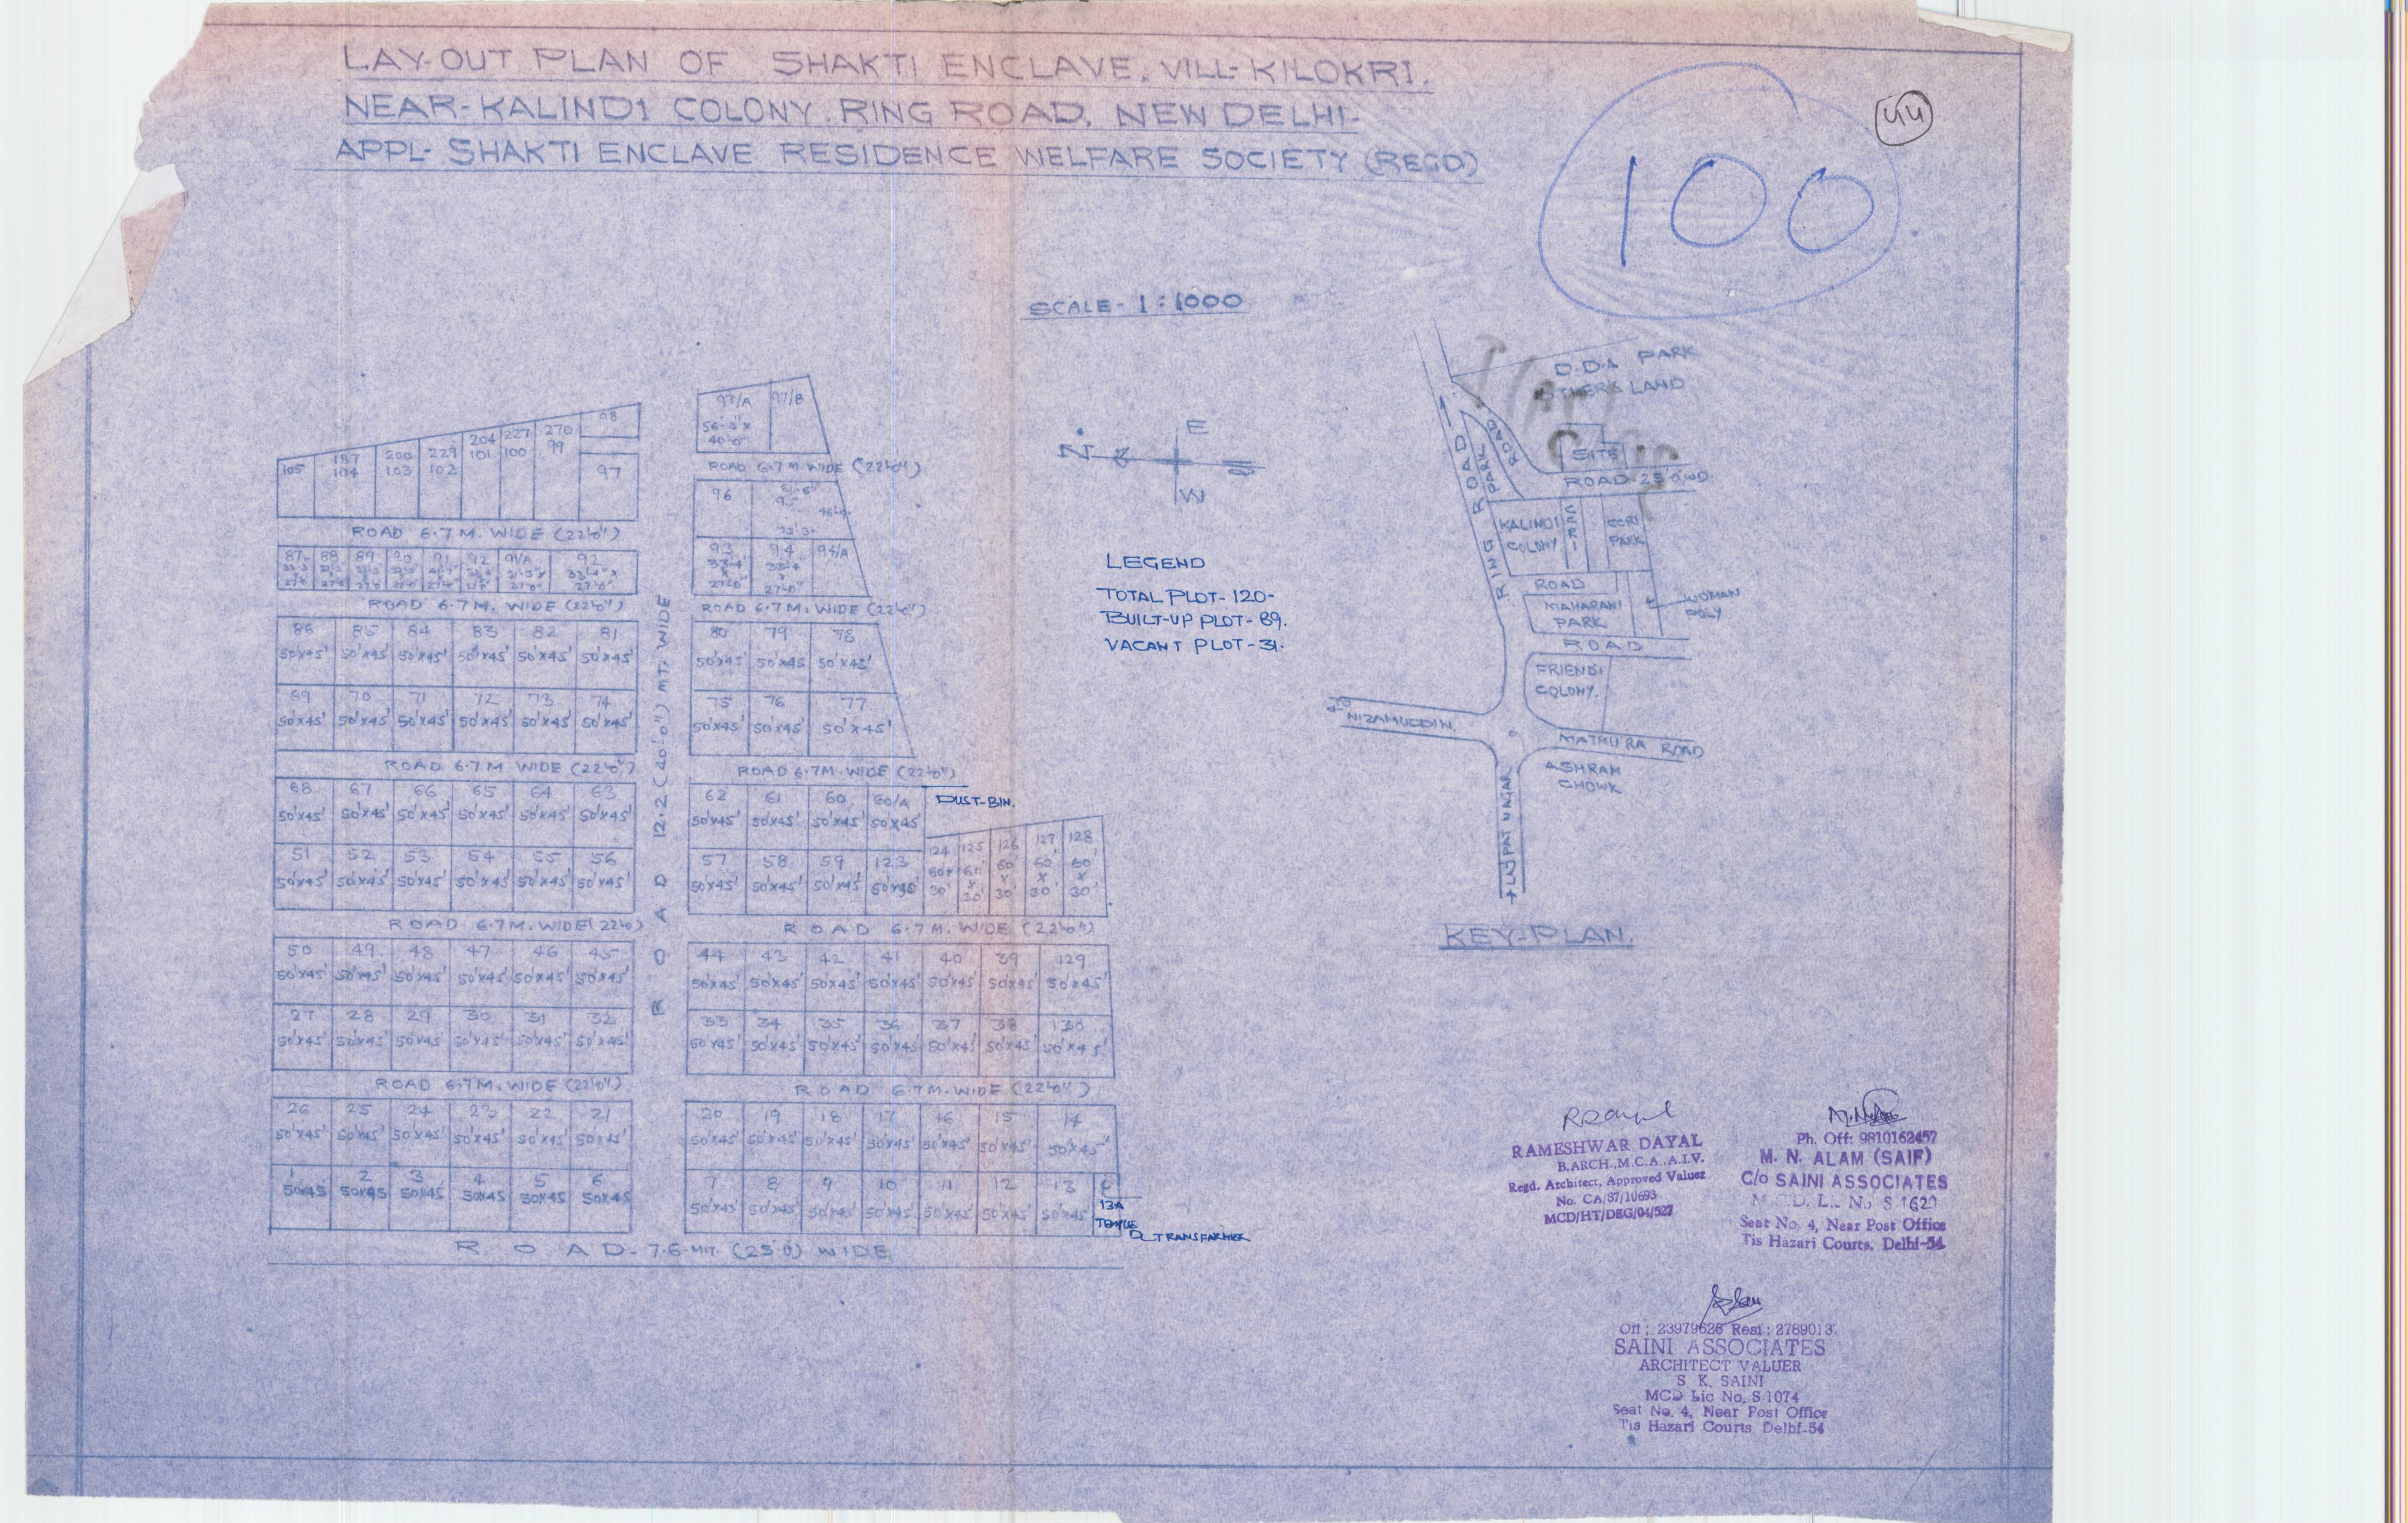 LAY-OUT PLAN OF SHAKTI ENCLAVE, VILL-KILOKRI.
NEAR-KALINDI COLONY. RING ROAD, NEW DELHI-
APPL- SHAKTI ENCLAVE RESIDENCE WELFARE SOCIETY (REGD)
44
100
SCALE - 1 : 1000
E
N
W
LEGEND
TOTAL PLOT- 120-
BUILT-UP PLOT- 89.
VACANT PLOT-31.
105 187 200 229 204 227 270 98
104 103 102 101 100 99 97
ROAD 6.7 M. WIDE (22'0")
87 88 89 90 91 92 91/A 92
31'-3"x 33'-4"x
27'-0" 27'-0"
ROAD 6.7M. WIDE (22'0")
86 85 84 83 82 81
50'x45' 50'x45' 50'x45' 50'x45' 50'x45' 50'x45'
69 70 71 72 73 74
50'x45' 50'x45' 50'x45' 50'x45' 50'x45' 50'x45'
ROAD 6.7M WIDE (22'0")
68 67 66 65 64 63
50'x45' 50'x45' 50'x45' 50'x45' 50'x45' 50'x45'
51 52 53 54 55 56
50'x45' 50'x45' 50'x45' 50'x45' 50'x45' 50'x45'
ROAD 6.7M. WIDE (22'0)
50 49 48 47 46 45
50'x45' 50'x45' 50'x45' 50'x45' 50'x45' 50'x45'
27 28 29 30 31 32
50'x45' 50'x45' 50'x45' 50'x45' 50'x45' 50'x45'
ROAD 6.7M. WIDE (22'0")
26 25 24 23 22 21
50'x45' 50'x45' 50'x45' 50'x45' 50'x45' 50'x45'
1 2 3 4 5 6
50x45 50x45 50x45 50x45 50x45 50x45
ROAD 12.2 (40'0") MT. WIDE
97/A 97/B
56'-3"x
40'-0"
ROAD 6.7 M. WIDE (22'0")
96 95
73'-3"
93 94 94/A
33'-4" 33'-4"
x x
27'-0" 27'-0"
ROAD 6.7M. WIDE (22'0")
80 79 78
50'x45' 50'x45 50'x45'
75 76 77
50'x45' 50'x45' 50'x45'
ROAD 6.7M. WIDE (22'0")
62 61 60 60/A DUST-BIN.
50'x45' 50'x45' 50'x45' 50'x45'
124 125 126 127 128
60x 60' 60' 60' 60'
x x x x
30' 30' 30' 30' 30'
57 58 59 123
50'x45' 50'x45' 50'x45'
ROAD 6.7M. WIDE (22'0")
44 43 42 41 40 39 129
50'x45' 50'x45' 50'x45' 50'x45' 50'x45' 50'x45' 50'x45'
33 34 35 36 37 38 130
50'x45' 50'x45' 50'x45' 50'x45 50'x45' 50'x45' 50'x45'
ROAD 6.7M. WIDE (22'0")
20 19 18 17 16 15 14
50'x45' 50'x45' 50'x45' 50'x45' 50'x45' 50'x45' 50'x45'
7 8 9 10 11 12 13
50'x45' 50'x45' 50'x45' 50'x45' 50'x45' 50'x45' 50'x45'
13A
TEMPLE
TRANSFARMER
ROAD-7.6-MIT. (25'0) WIDE
D.D.A PARK
OTHERS LAND
SITE
ROAD 25'0 WD.
RING ROAD
PARK
ROAD
KALINDI
COLONY
PARK
ROAD
MAHARANI
PARK
WOMAN
POLY
ROAD
FRIENDS
COLONY.
NIZAMUDDIN.
MATHURA ROAD
ASHRAM
CHOWK
LAJPAT NAGAR
KEY-PLAN.
RAMESHWAR DAYAL
B.ARCH.,M.C.A.,A.I.V.
Regd. Architect, Approved Valuer
No. CA/87/10693
MCD/HT/DEG/04/527
Ph. Off: 9810162457
M. N. ALAM (SAIF)
C/o SAINI ASSOCIATES
M.C.D. L.. No S 1620
Seat No. 4, Near Post Office
Tis Hazari Courts, Delhi-54
Off : 23979626 Resi : 2789013
SAINI ASSOCIATES
ARCHITECT VALUER
S K. SAINI
MCD Lic No. S 1074
Seat No. 4, Near Post Office
Tis Hazari Courts Delhi-54